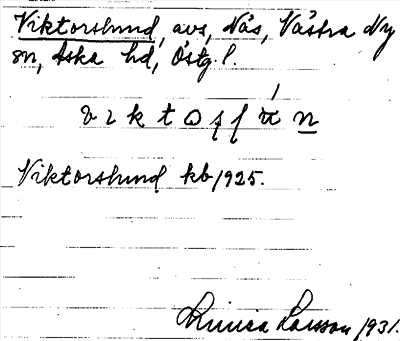 Viktorslund, avs, Nås, Västra Ny
sn, Aska hd, Östg. l.
Viktorslund kb 1925.
Linnea Larsson 1931.